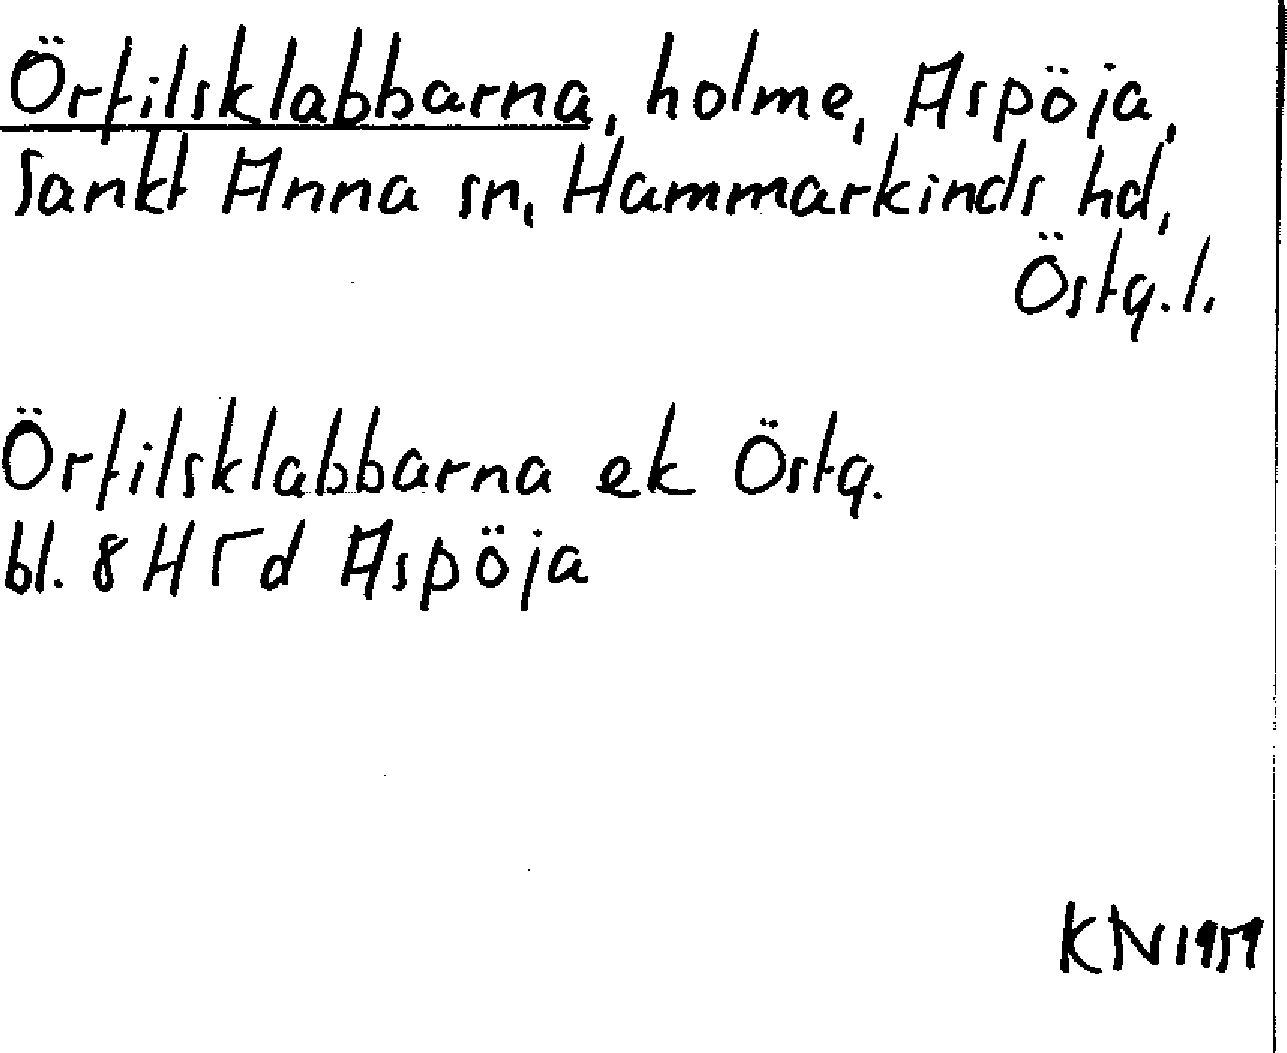 Örfilsklabbarna, holme, Aspöja,
Sankt Anna sn, Hammarkinds hd,
Östg. l.
Örfilsklabbarna ek Östg.
bl. 8 H Γ d Aspöja
KN 1959